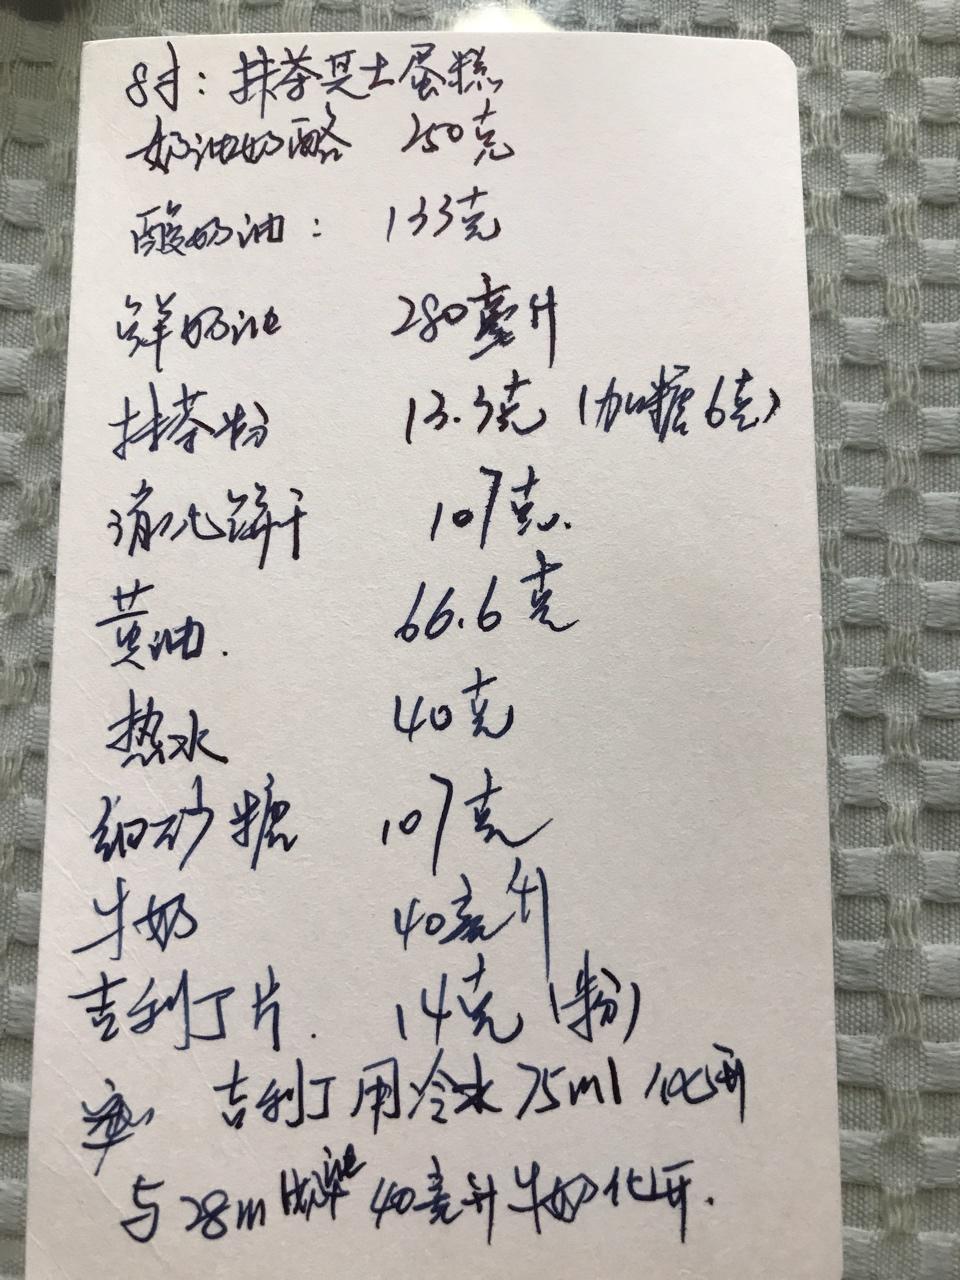 8寸：抹茶芝士蛋糕
奶油奶酪 250克
酸奶油： 133克
鲜奶油 280毫升
抹茶粉 13.3克（加糖6克）
消化饼干 107克.
黄油. 66.6克
热水 40克
细砂糖 107克
牛奶 40毫升
吉利丁片. 14克（粉）
吉利丁用冷水75ml化开
与28m 40毫升牛奶化开.